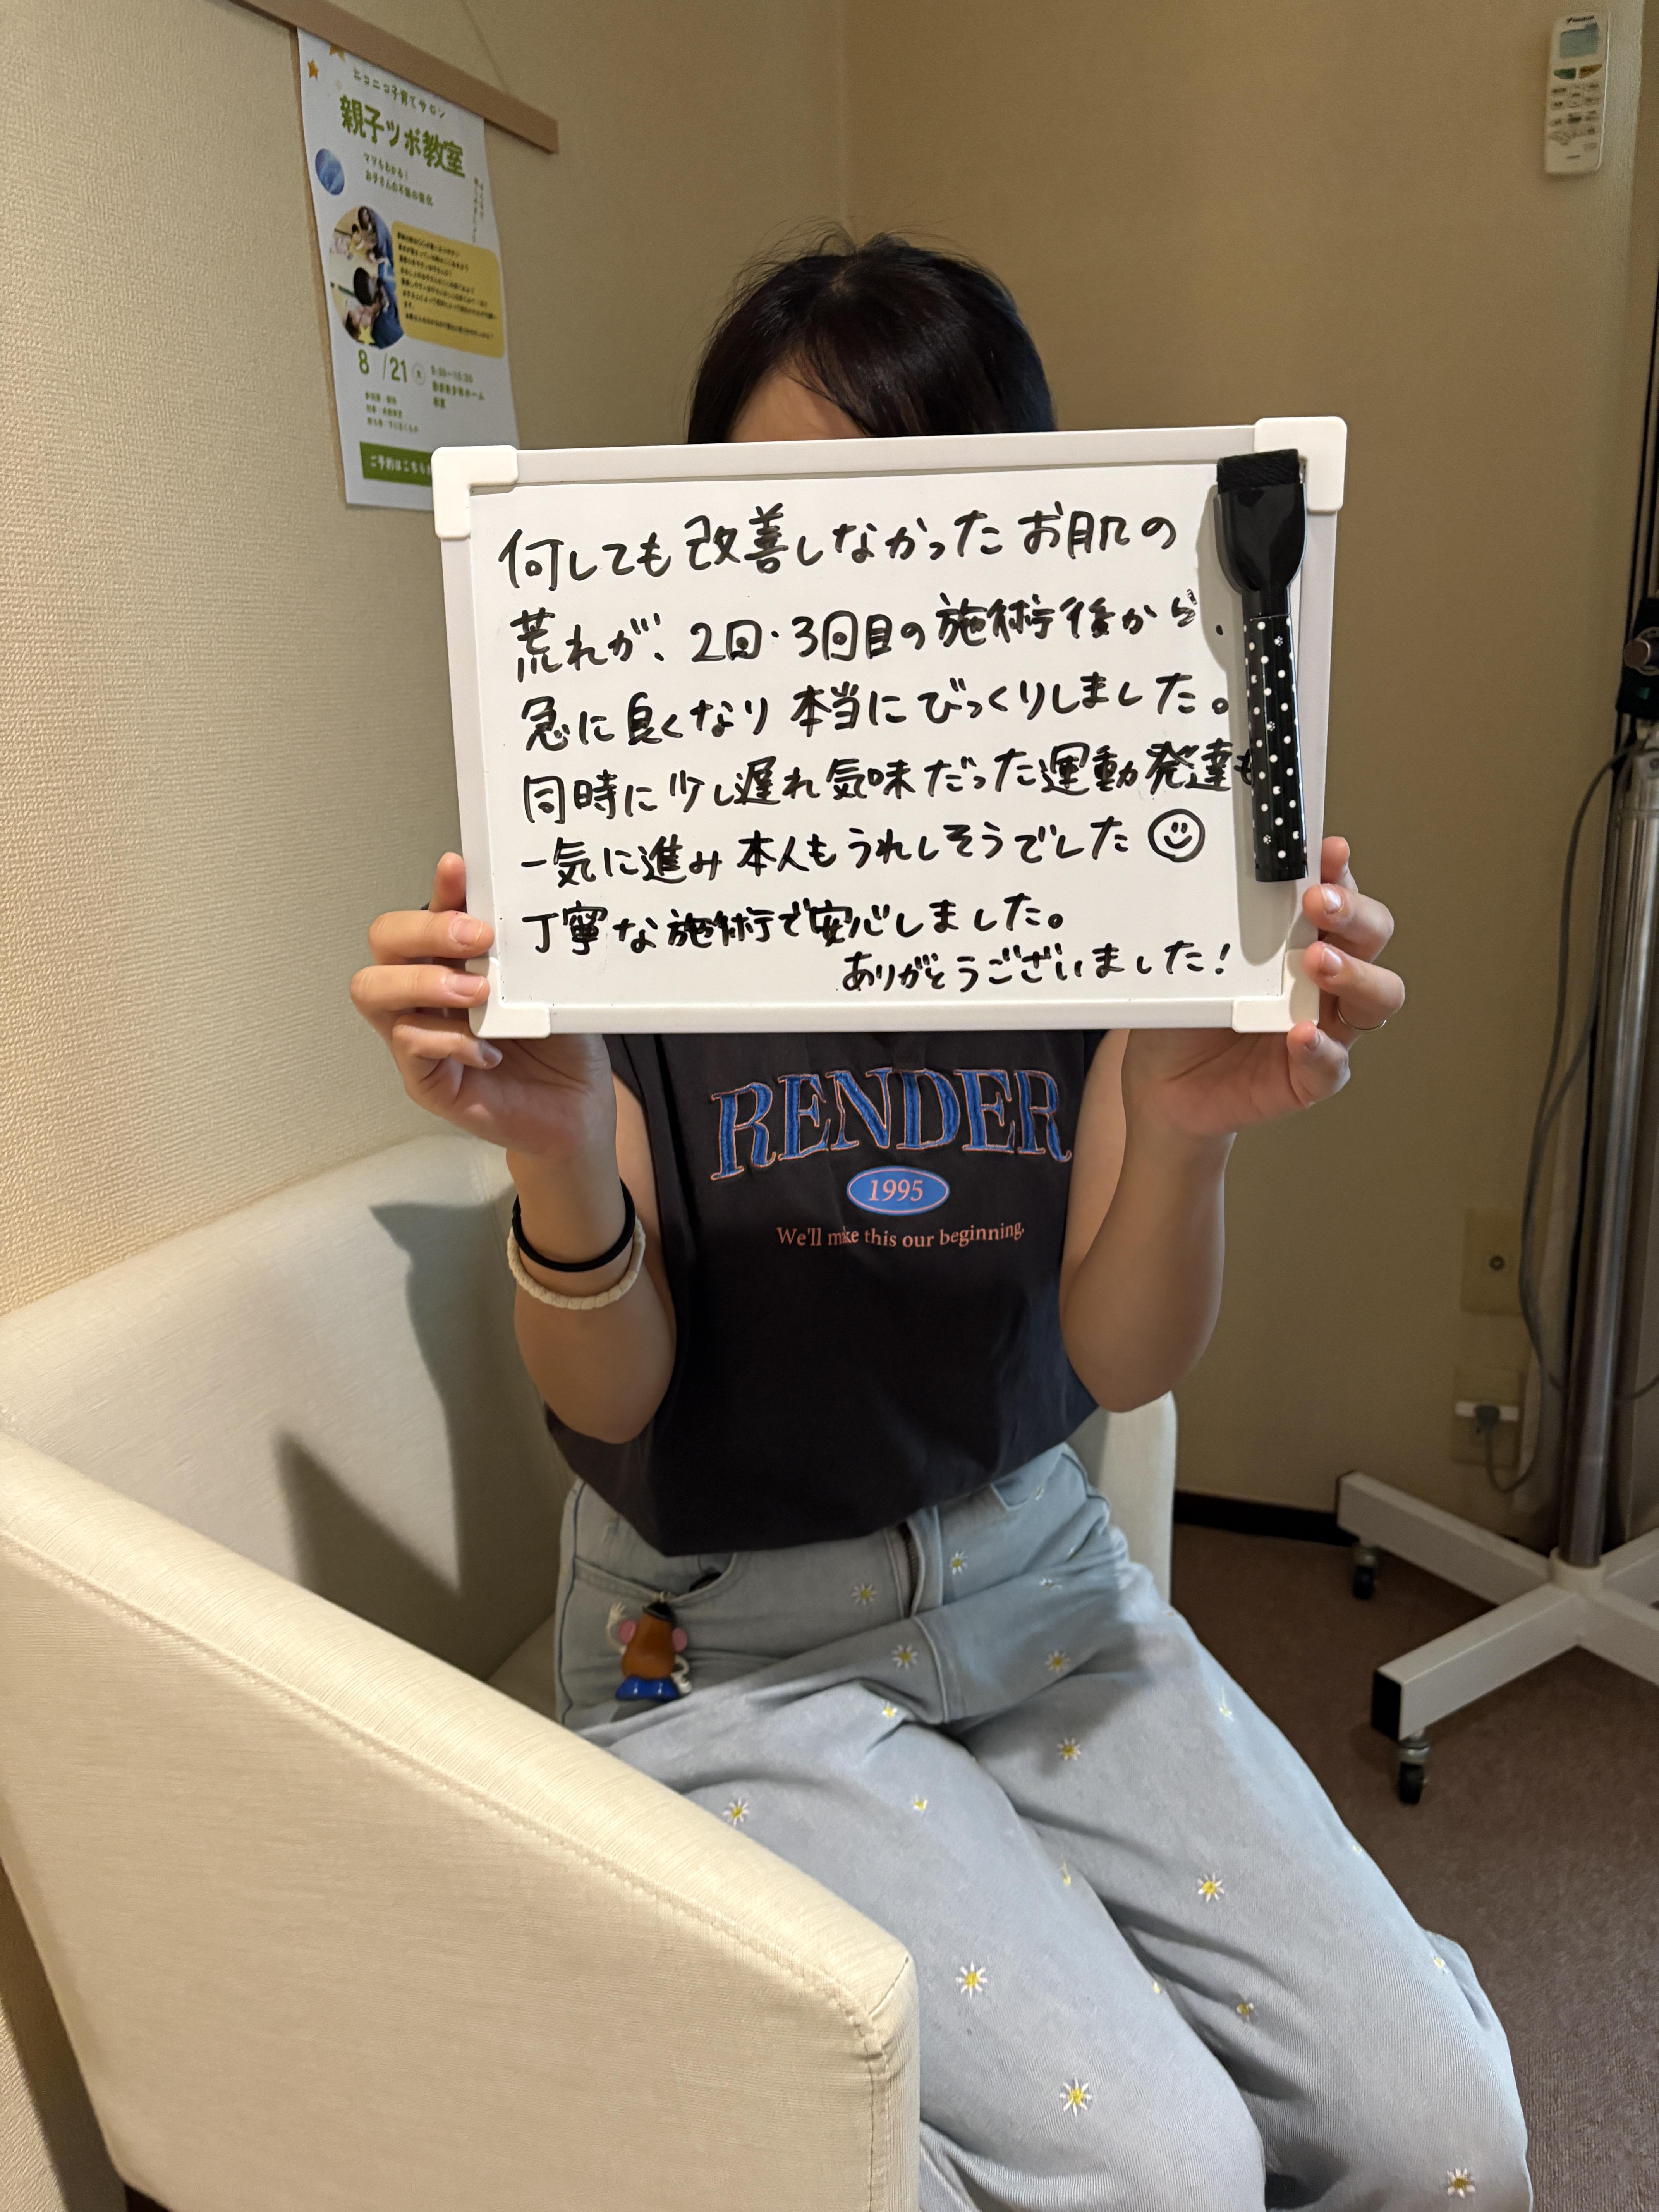 ニコニコ子育てサロン
親子ツボ教室
ママもわかる！
お子さんの不調の変化
8/21
ご予約はこちら
何しても改善しなかったお肌の
荒れが、2回・3回目の施術後から、
急に良くなり本当にびっくりしました。
同時に少し遅れ気味だった運動発達も
一気に進み本人もうれしそうでした
丁寧な施術で安心しました。
ありがとうございました！
RENDER
1995
We'll make this our beginning.